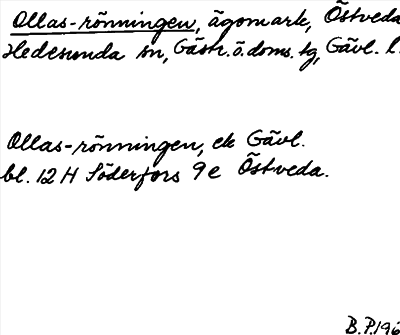 Ollas-rönningen, ägomark, Östveda
Hedesunda sn, Gästr. ö. doms. tg, Gävl. l.
Ollas-rönningen, ek Gävl.
bl. 12 H Söderfors 9 e Östveda.
B.P. 196